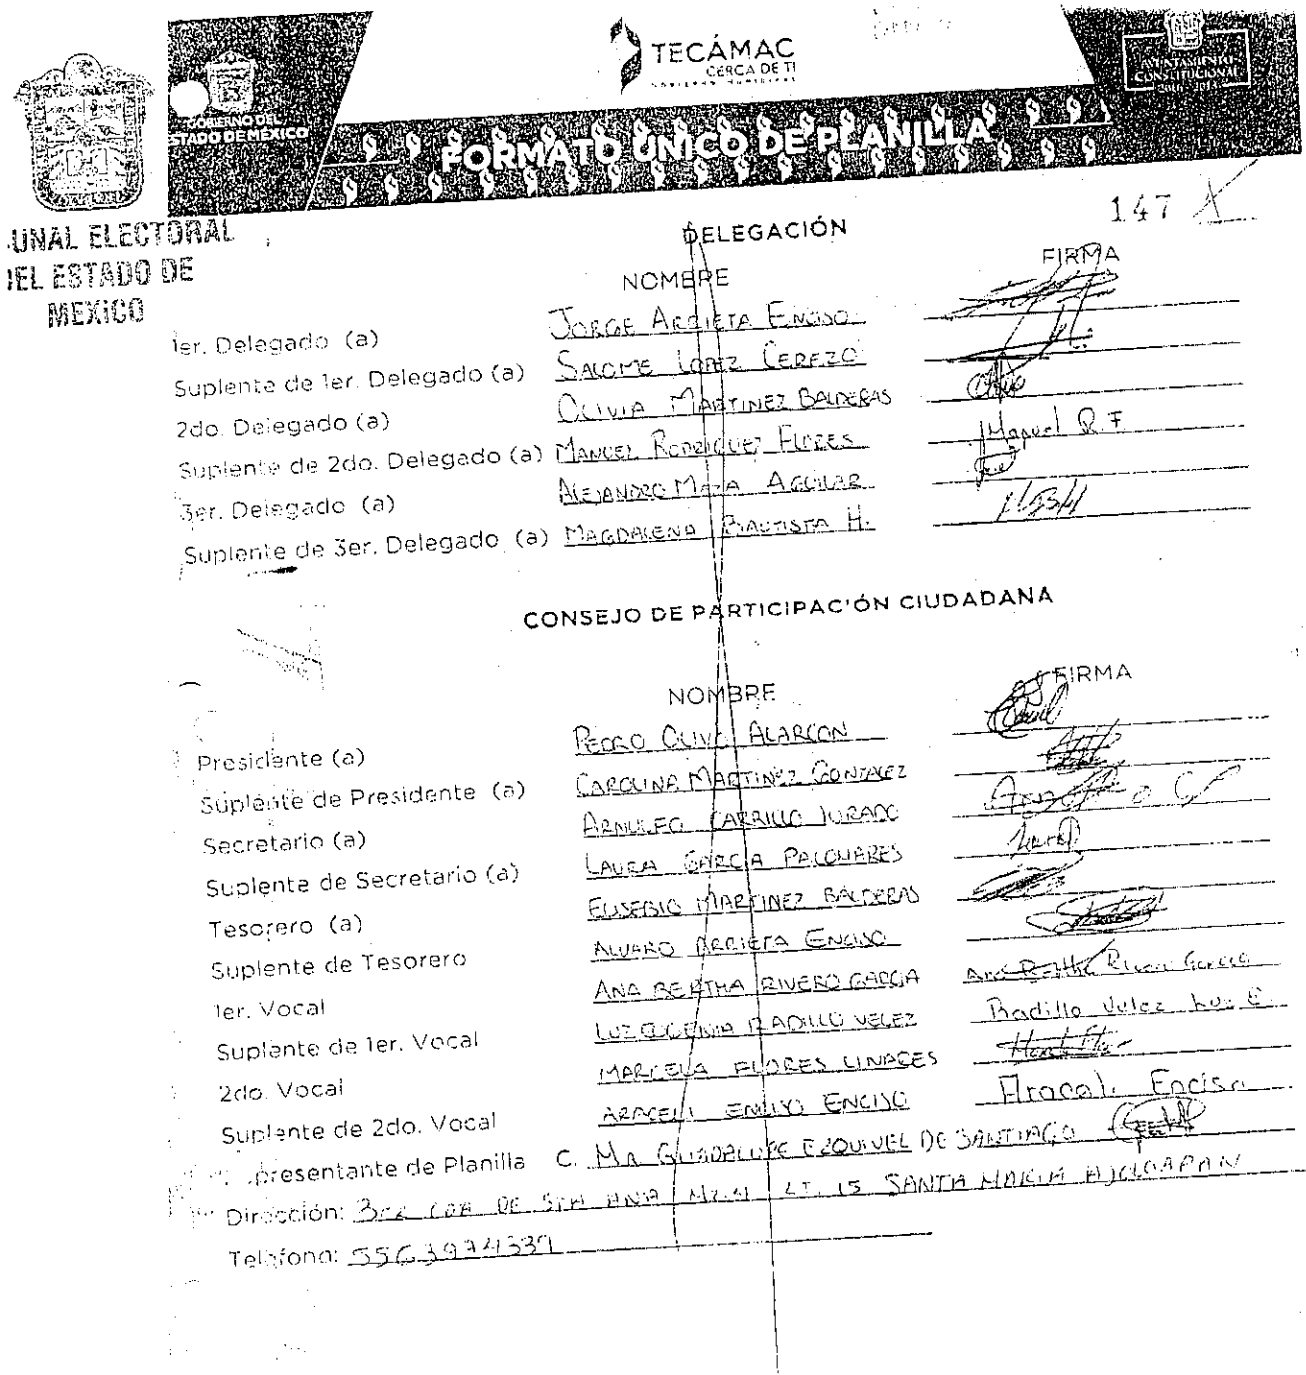 TECÁMAC
CERCA DE TI
GOBIERNO MUNICIPAL
AYUNTAMIENTO
CONSTITUCIONAL
GOBIERNO DEL
ESTADO DE MÉXICO
FORMATO ÚNICO DE PLANILLA
147
UNAL ELECTORAL
DEL ESTADO DE
MÉXICO
DELEGACIÓN
NOMBRE FIRMA
1er. Delegado (a) JORGE ARRIETA ENCISO
Suplente de 1er. Delegado (a) SALOME LOPEZ CEREZO
2do. Delegado (a) OLIVIA MARTINEZ BALDERAS
Suplente de 2do. Delegado (a) MANUEL RODRIGUEZ FLORES Manuel R. F.
3er. Delegado (a) ALEJANDRO MAYA AGUILAR
Suplente de 3er. Delegado (a) MAGDALENA BAUTISTA H.
CONSEJO DE PARTICIPAC'ÓN CIUDADANA
NOMBRE FIRMA
Presidente (a) PEDRO OLIVO ALARCON
Suplente de Presidente (a) CAROLINA MARTINEZ GONZALEZ
Secretario (a) ARNULFO CARRILLO JURADO
Suplente de Secretario (a) LAURA GARCIA PALOMARES
Tesorero (a) EUSEBIO MARTINEZ BALDERAS
Suplente de Tesorero ALVARO ARRIETA ENCISO
1er. Vocal ANA BERTHA RIVERO GARCIA Ana Bertha Rivero Garcia
Suplente de 1er. Vocal LUZ EUGENIA BADILLO VELEZ Badillo Velez Luz E.
2do. Vocal MARCELA FLORES LINARES
Suplente de 2do. Vocal ARACELI ENCISO ENCISO Araceli Enciso
presentante de Planilla C. MA GUADALUPE EZQUIVEL DE SANTIAGO
Dirección: 3ra CDA DE STA ANA MZ. 4 LT. 15 SANTA MARIA AJOLOAPAN
Teléfono: